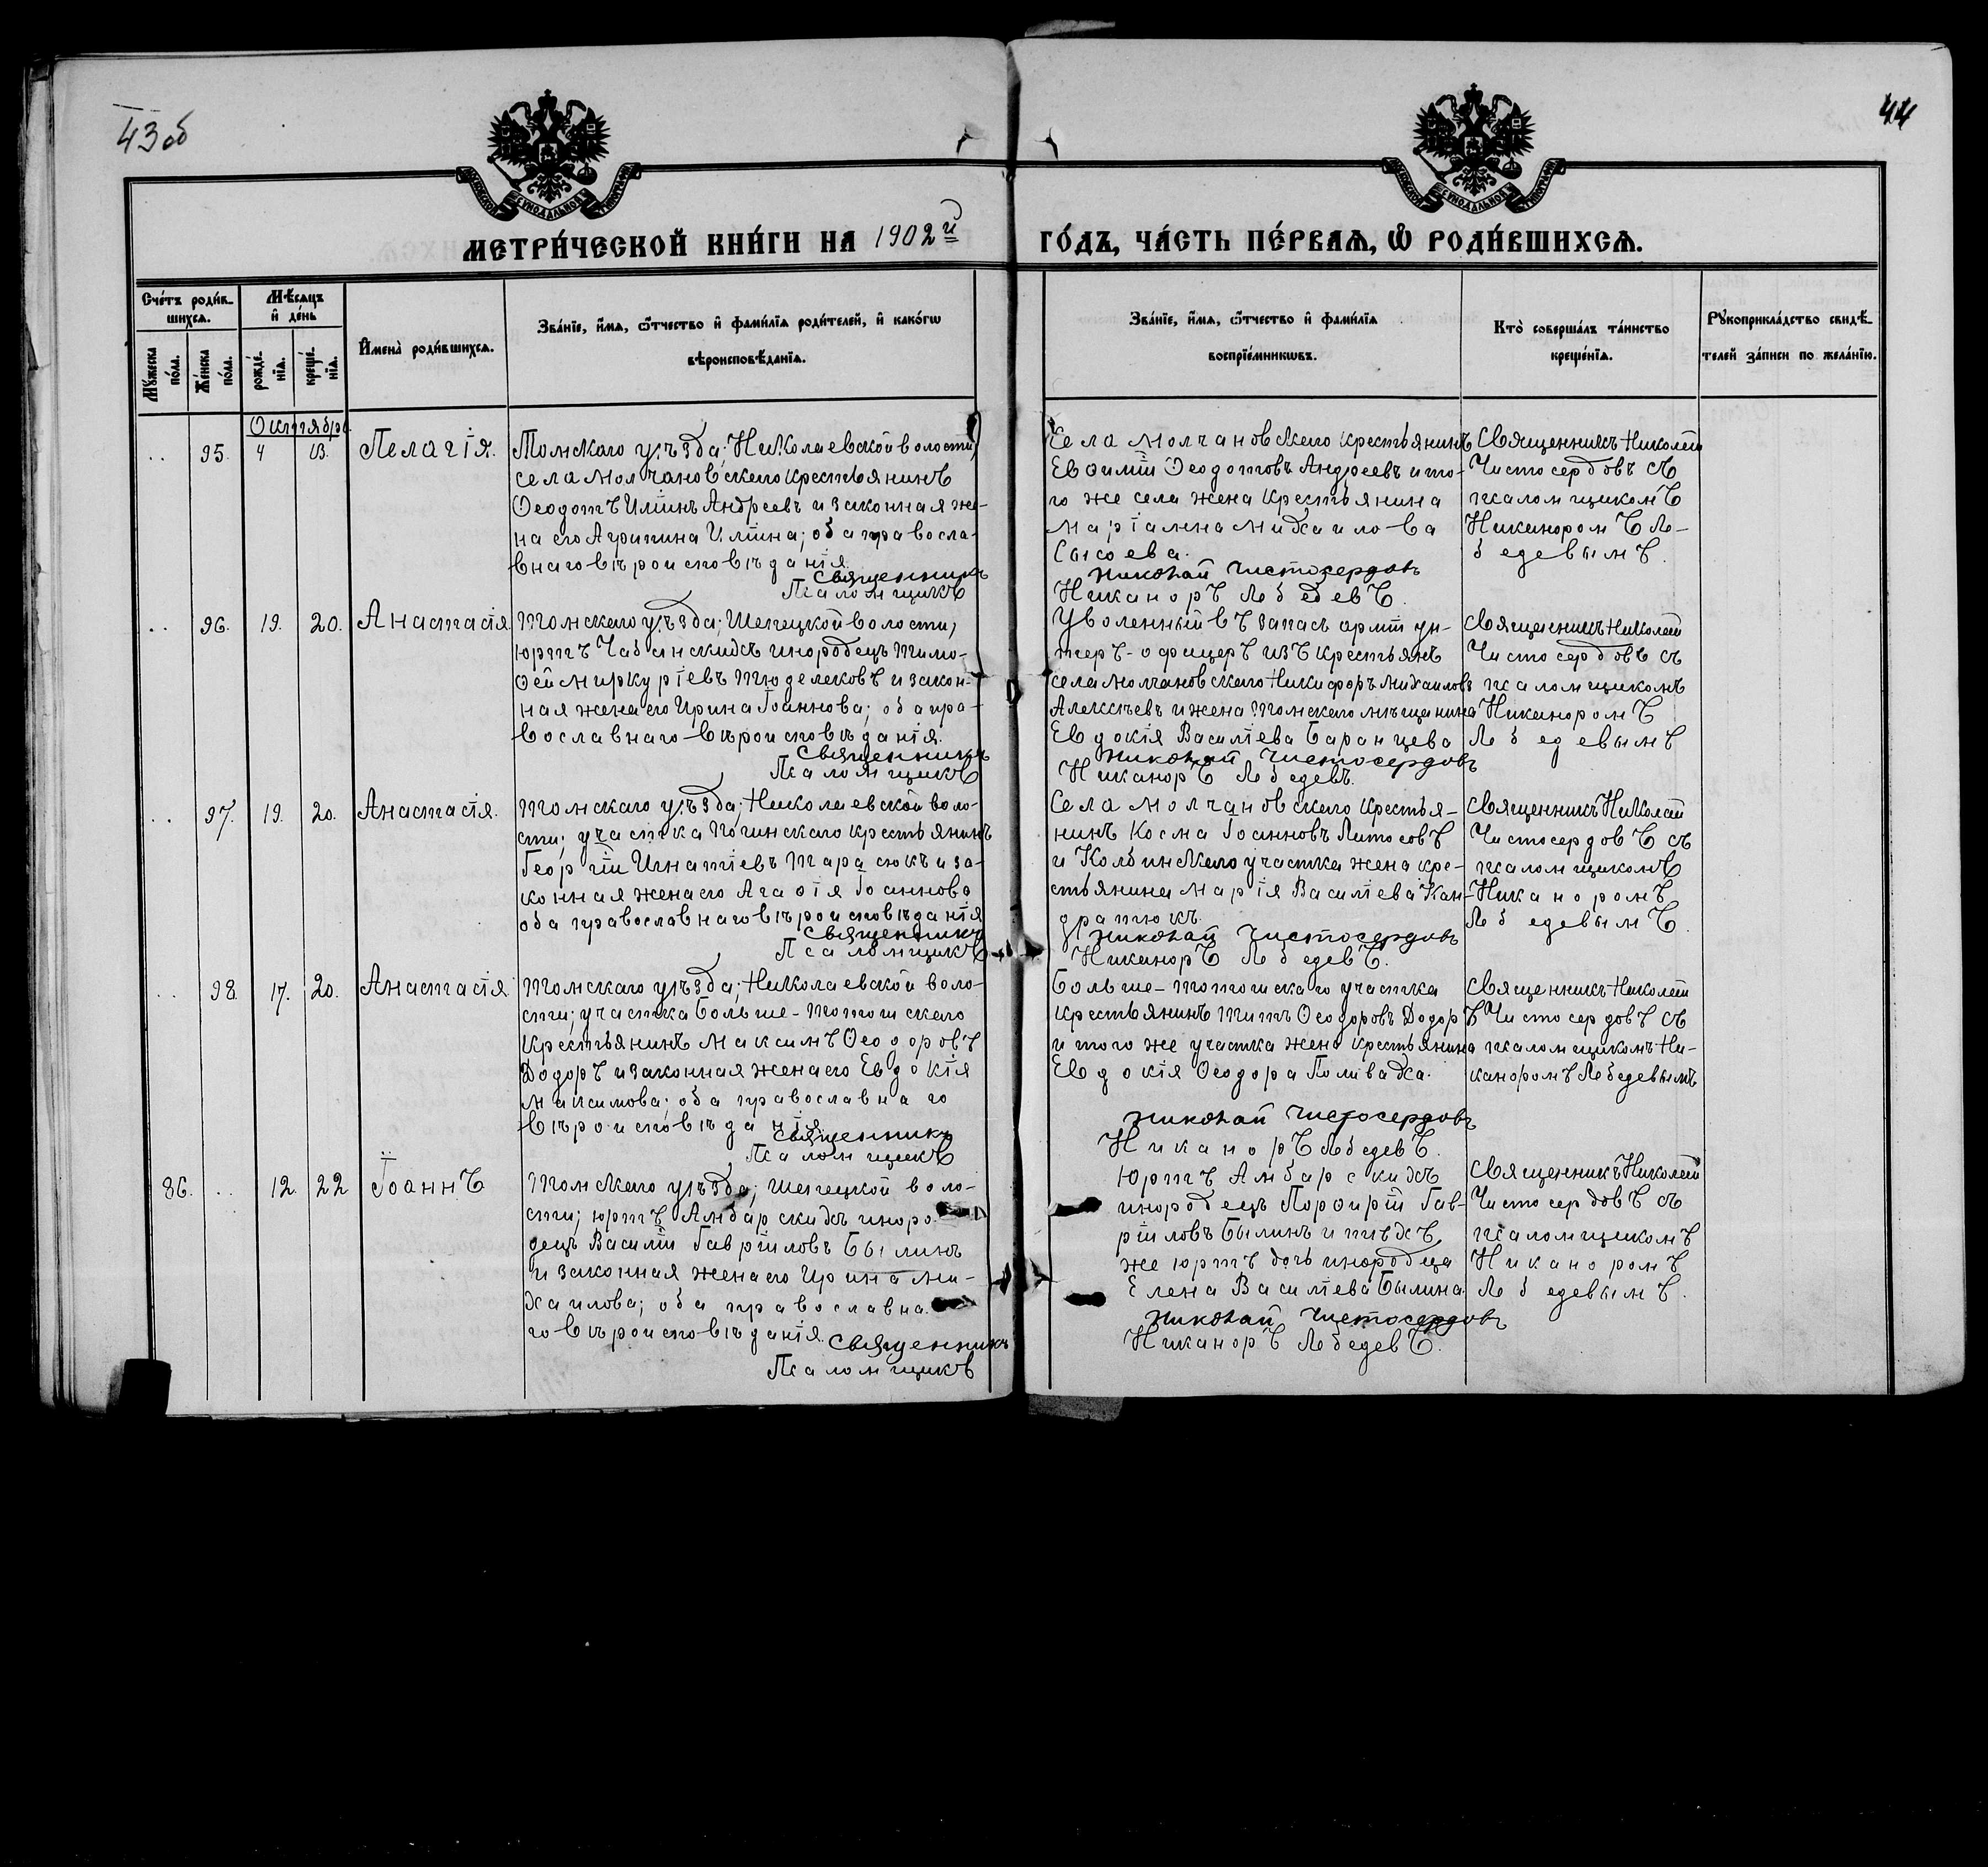 43 об
44
МЕТРИ́ЧЕСКОЙ КНИ́ГИ НА 1902й
ГО́ДЪ, ЧА́СТЬ ПЕ́РВАѦ, Ѿ РОДИ́ВШИХСѦ.
Счетъ роди́в-
шихсѧ.
Мꙋжеска
по́ла.
Же́нска
по́ла.
Мѣ́сѧцъ
и҆ де́нь
рожде́-
нїѧ.
креще́-
нїѧ.
И҆мена̀ роди́вшихсѧ.
Зва́нїе, и҆́мѧ, ѻ҆́тчество и҆ фами́лїѧ роди́телей, и҆ како́гѡ
вѣроисповѣ́данїѧ.
Зва́нїе, и҆́мѧ, ѻ҆́тчество и҆ фами́лїѧ
воспрїе́мникѡвъ.
Кто̀ соверша́лъ та́инство
креще́нїѧ.
Рꙋкоприкла́дство свидѣ́-
телей за́писи по жела́нїю.
Октября
.. 95. 4 13. Пелагія.
Томскаго уѣзда; Николаевской волости,
села Молчановскаго крестьянинъ
Ѳеодотъ Иліинъ Андреевъ и законная же-
на его Агрипина Иліина; оба правосла-
внаго вѣроисповѣданія.
Священникъ
Псаломщикъ
Села Молчановскаго крестьянинъ
Евѳимій Ѳеодотовъ Андреевъ и то-
го же села жена крестьянина
Маріамна Михаилова
Сысоева.
Николай Чистосердовъ
Никаноръ Лебедевъ.
Священникъ Николай
Чистосердовъ съ
псаломщикомъ
Никаноромъ Ле-
бедевымъ.
.. 96. 19. 20. Анастасія
Томскаго уѣзда; Шепецкой волости,
юртъ Чабанскихъ инородецъ Тимо-
ѳей Миркуріевъ Тюделековъ и закон-
ная жена его Ирина Іоаннова; оба пра-
вославнаго вѣроисповѣданія.
Священникъ
Псаломщикъ
Уволенный въ запасъ арміи ун-
теръ-офицеръ изъ крестьянъ
села Молчановскаго Никифоръ Михаиловъ
Алексѣевъ и жена Томскаго мѣщанина
Евдокія Василіева Баранцева
Николай Чистосердовъ
Никаноръ Лебедевъ.
Священникъ Николай
Чистосердовъ съ
псаломщикомъ
Никаноромъ
Лебедевымъ
.. 97. 19. 20. Анастасія.
Томскаго уѣзда; Николаевской воло-
сти; участка крестьянинъ
Георгій Игнатіевъ Тарасюкъ и за-
конная жена его Агаѳія Іоаннова
оба православнаго вѣроисповѣданія
Священникъ
Псаломщикъ
Села Молчановскаго крестья-
нинъ Косма Іоанновъ Литосовъ
и Колбинскаго участка жена кре-
стьянина Марія Василіева Кан-
дратюкъ.
Николай Чистосердовъ
Никаноръ Лебедевъ.
Священникъ Николай
Чистосердовъ съ
псаломщикомъ
Никаноромъ
Лебедевымъ.
.. 98. 17. 20. Анастасія
Томскаго уѣзда; Николаевской воло-
сти; участка Больше-
крестьянинъ Максимъ Ѳеодоровъ
Додоръ и законная жена его Евдокія
Максимова; оба православнаго
вѣроисповѣданія.
Священникъ
Псаломщикъ
Больше- участка
крестьянинъ Титъ Ѳеодоровъ Додоръ
и того же участка жена крестьянина
Евдокія Ѳеодора Поливаха.
Николай Чистосердовъ
Никаноръ Лебедевъ.
Священникъ Николай
Чистосердовъ съ
псаломщикомъ Ни-
каноромъ Лебедевымъ
86. .. 12. 22 Іоаннъ
Томскаго уѣзда; Шепецкой воло-
сти; юртъ Амбарскихъ иноро-
децъ Василій Гавріиловъ Былинъ
и законная жена его Ирина Ми-
хаилова; оба православна-
го вѣроисповѣданія.
Священникъ
Псаломщикъ
Юртъ Амбарскихъ
инородецъ Порѳирій Гав-
ріиловъ Былинъ и тѣхъ
же юртъ дочь инородца
Елена Василіева Былина.
Николай Чистосердовъ
Никаноръ Лебедевъ.
Священникъ Николай
Чистосердовъ съ
псаломщикомъ
Никаноромъ
Лебедевымъ.